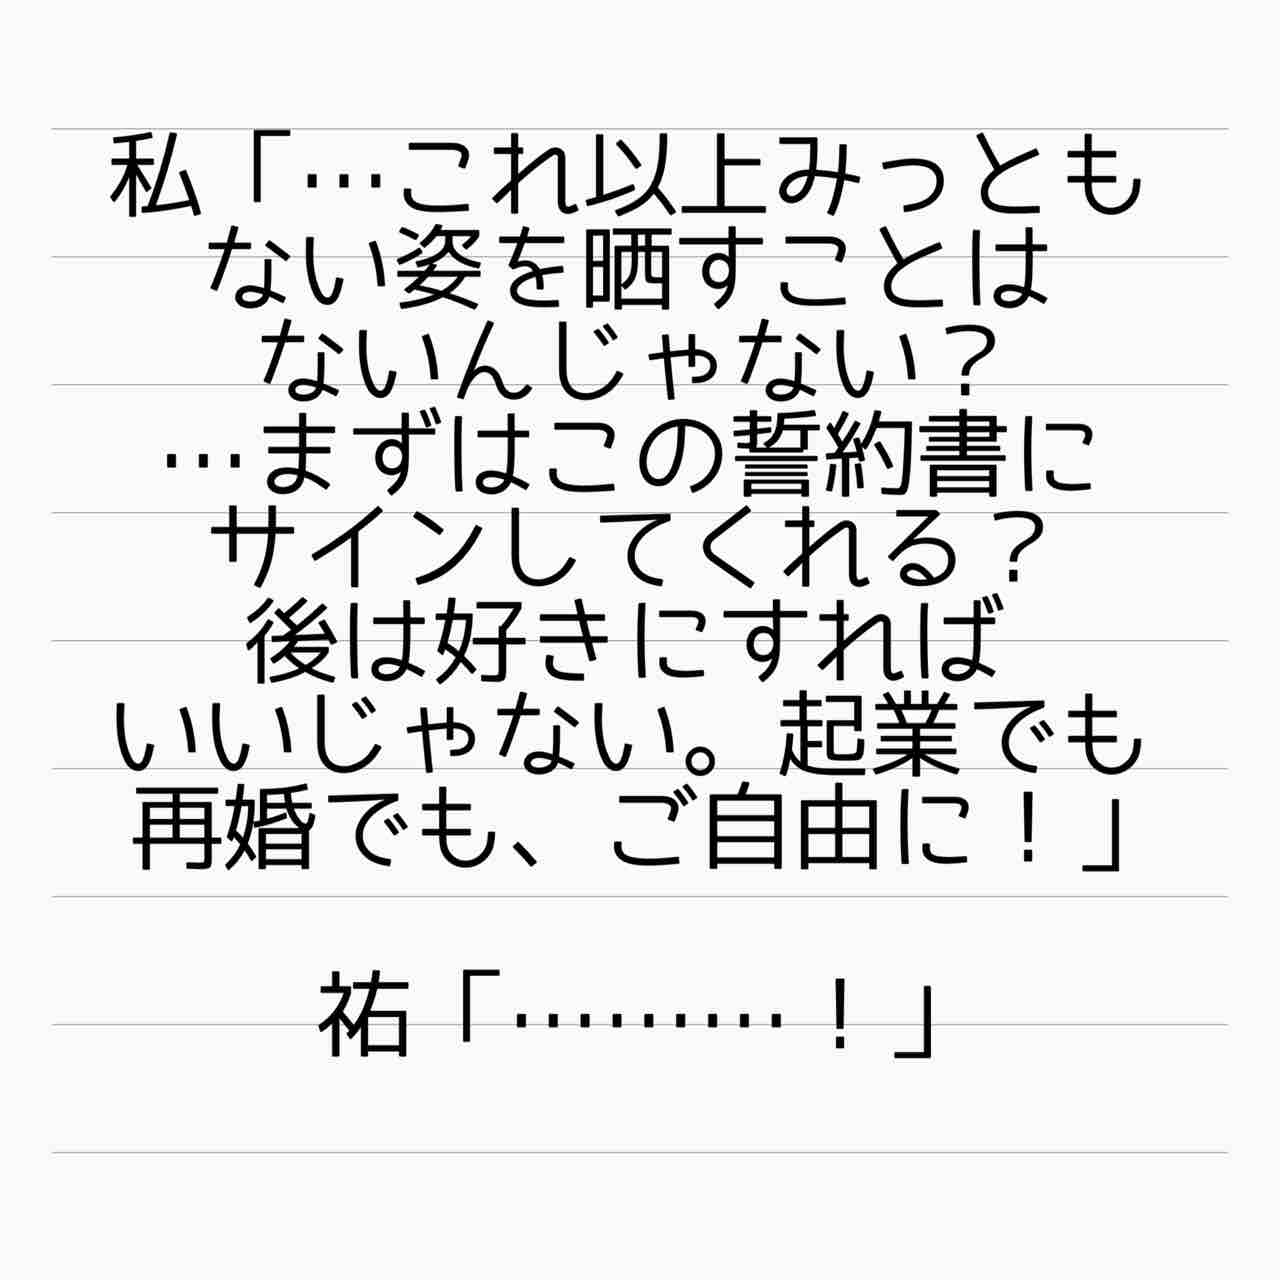 私「…これ以上みっとも
ない姿を晒すことは
ないんじゃない？
…まずはこの誓約書に
サインしてくれる？
後は好きにすれば
いいじゃない。起業でも
再婚でも、ご自由に！」
祐「………！」